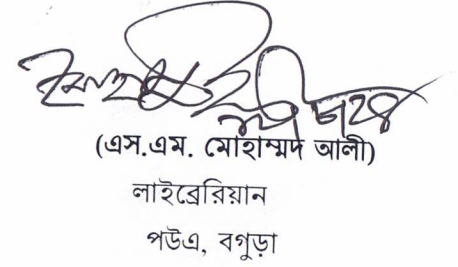 (এস.এম. মোহাম্মদ আলী)
লাইব্রেরিয়ান
পউএ, বগুড়া